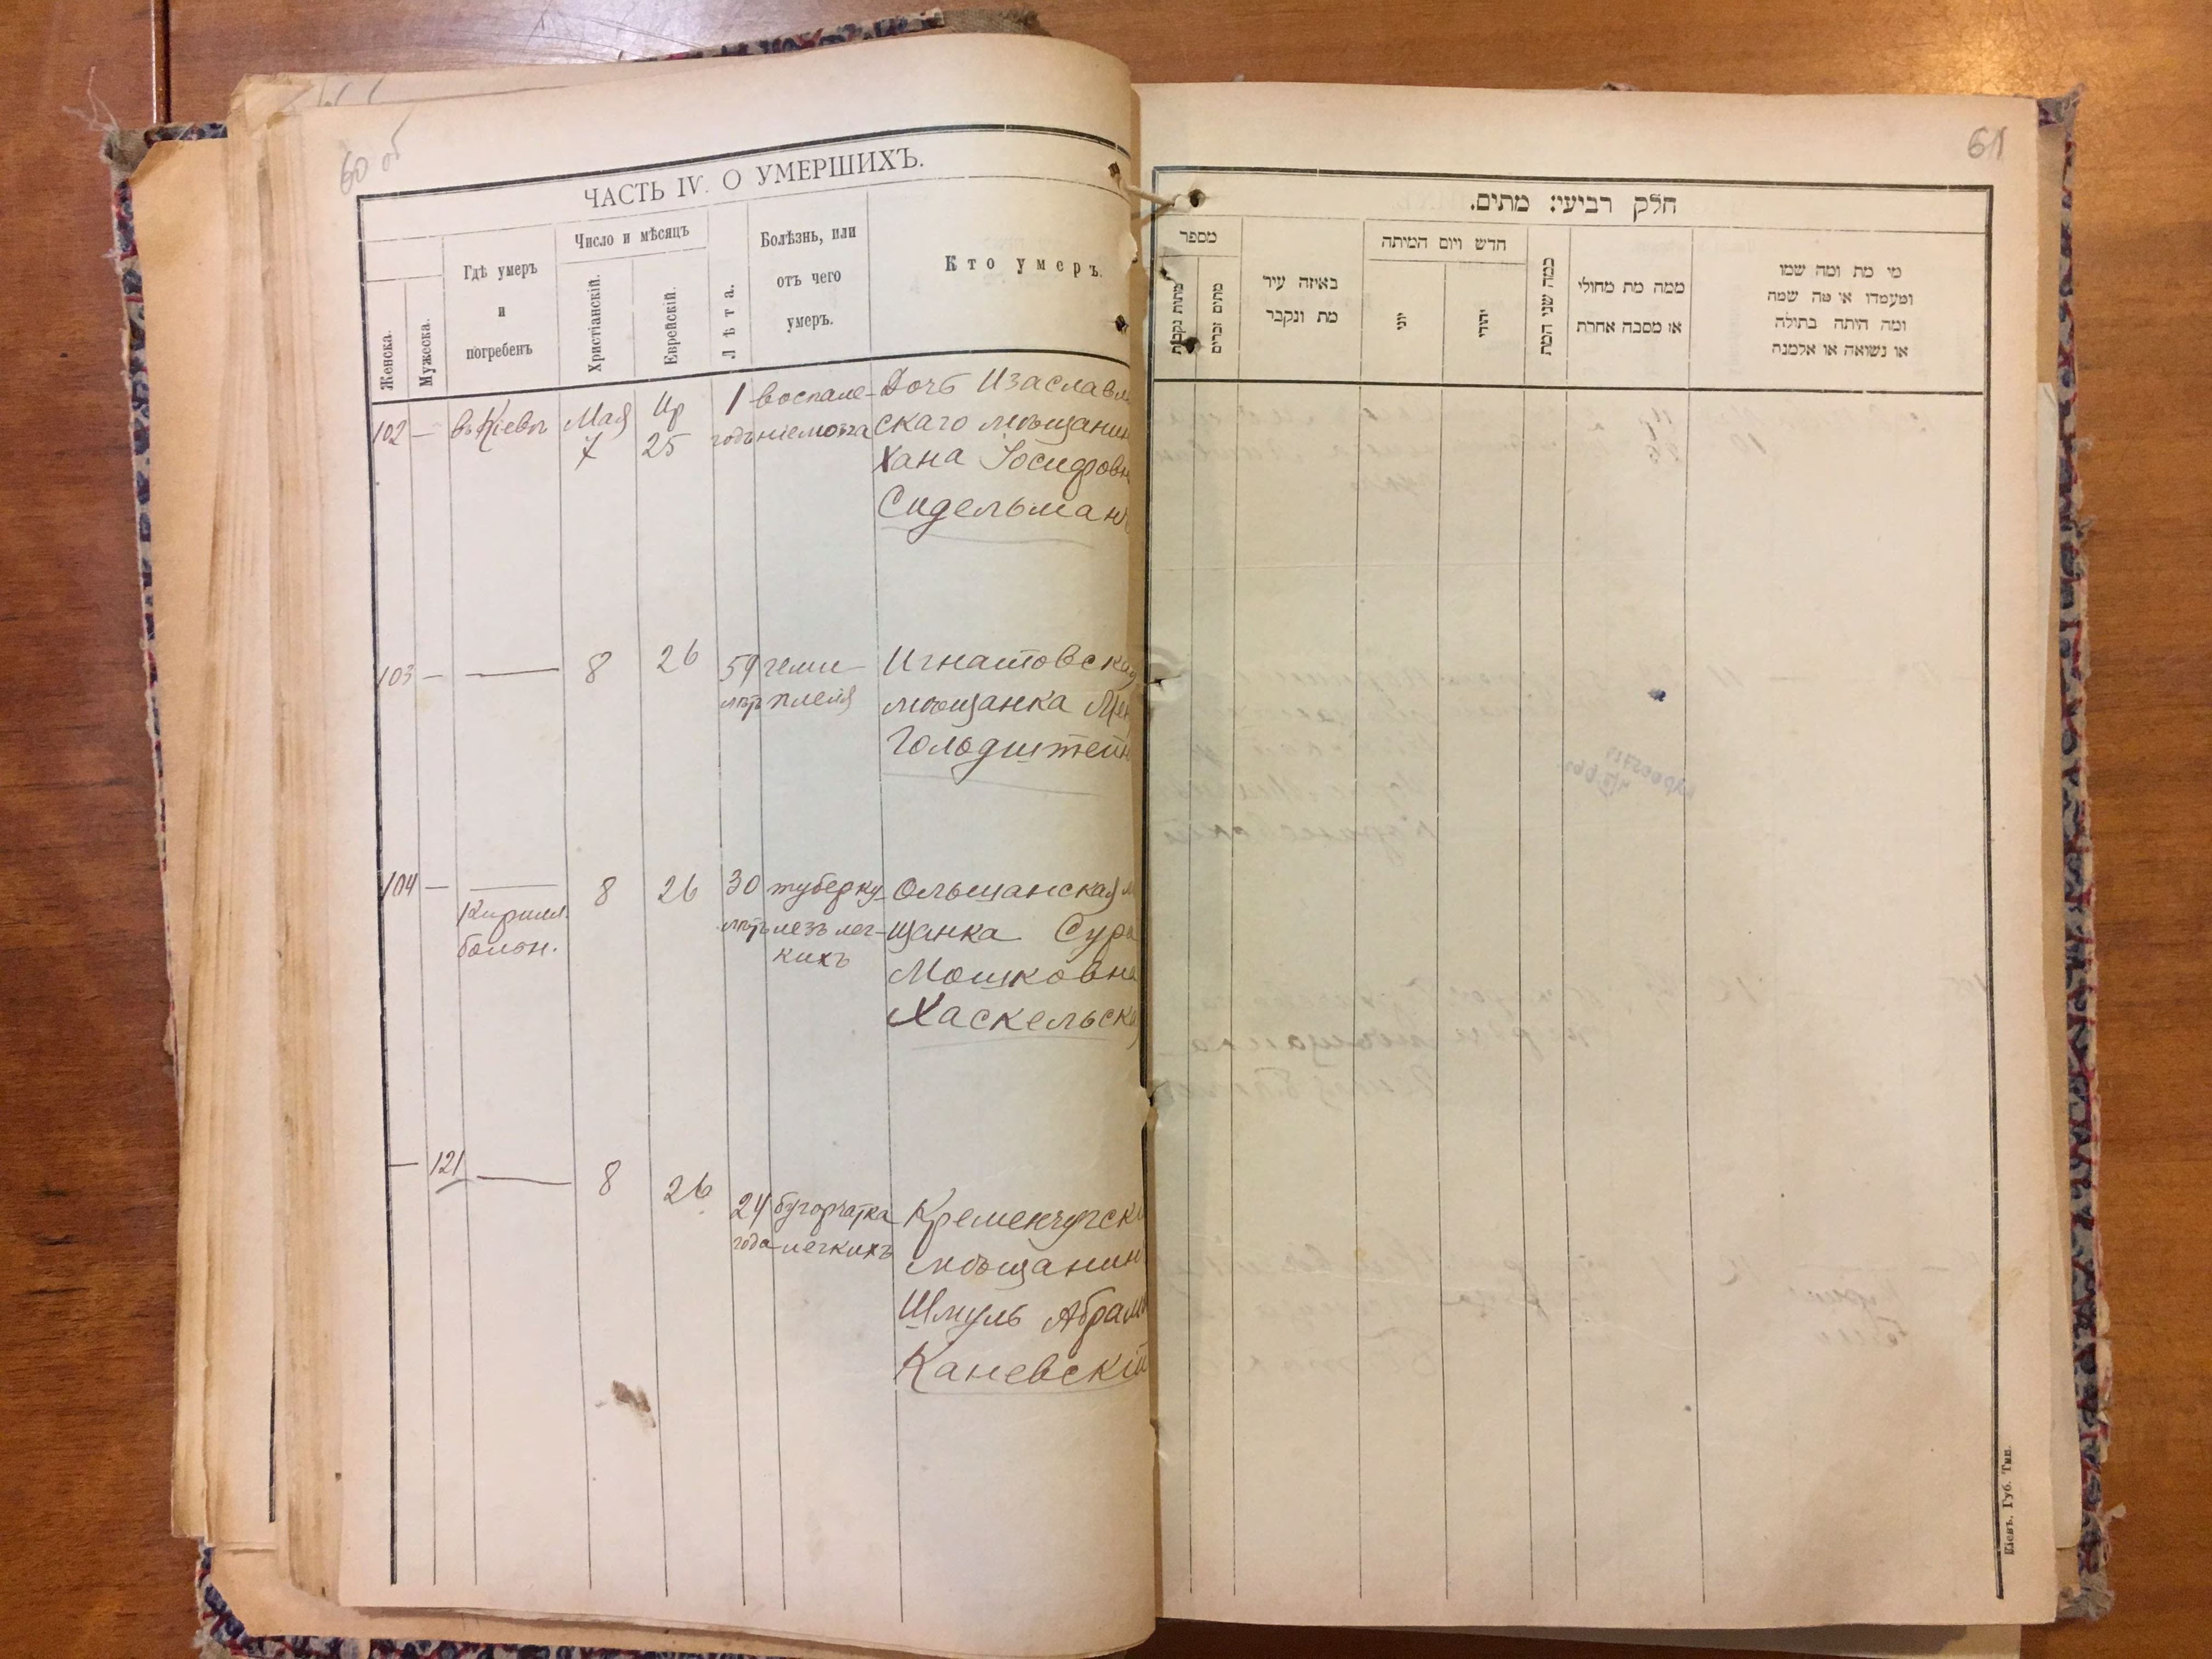 60 об
ЧАСТЬ IV. О УМЕРШИХЪ.
Женска.
Мужеска.
Гдѣ умеръ
и
погребенъ
Число и мѣсяцъ
Христіанскій.
Еврейскій.
Лѣта.
Болѣзнь, или
отъ чего
умеръ.
Кто умеръ.
102 — в. Кіевѣ Мая 7 Ир 25 1 годъ воспале-
ніе мозга
Дочь Изаславл
скаго мѣщанин
Хана Іосифовн
Сидельман
103 — — 8 26 59 лѣтъ геми-
плегія
Игнатовская
мѣщанка
Голодштейн
104 — — 8 26 30 лѣтъ туберку-
лезъ лег-
кихъ
Кирилл.
больн.
Ольшанская м
щанка Сура
Мошковна
Хаскельска
— 121 — 8 26 24 года бугорчатка
легкихъ
Кременчугски
мѣщанин
Шмуль Абрам
Каневскій
61
חלק רביעי: מתים.
מספר
מתות נקבות
מתים זכרים
באיזה עיר
מת ונקבר
חדש ויום המיתה
יוני
יהודי
כמה שני המת
ממה מת מחולי
או מסבה אחרת
מי מת ומה שמו
ומעמדו או מה שמה
ומה היתה בתולה
או נשואה או אלמנה
Кіевъ. Губ. Тип.